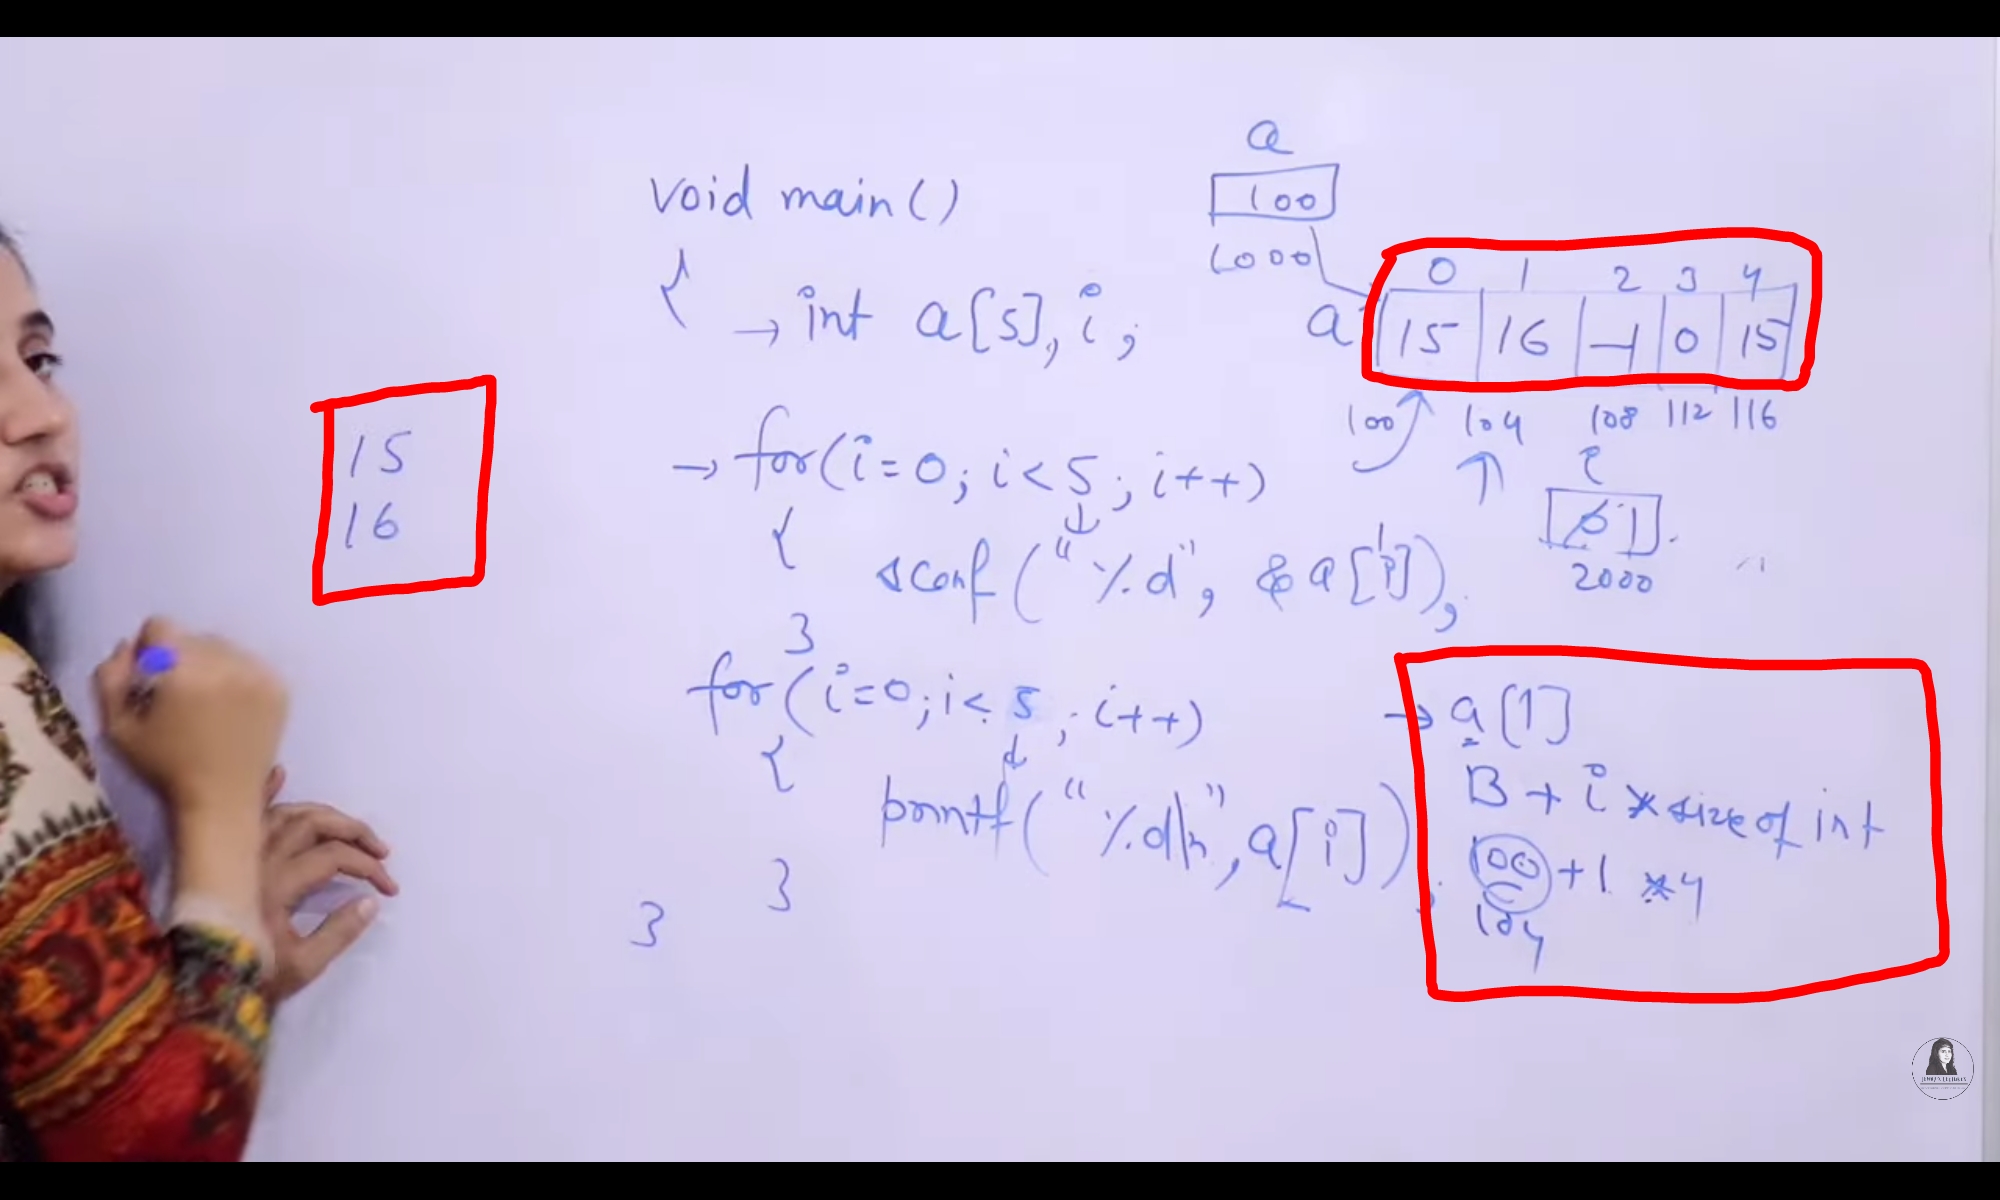 void main()
{
→ int a[5], i;
→ for(i=0; i<5; i++)
{
scanf("%d", &a[i]);
}
for(i=0; i<5; i++)
{
printf("%d\n", a[i]);
}
}
15
16
a
100
1000
0 1 2 3 4
a 15 16 -1 0 15
100 104 108 112 116
i
0 1
2000
→ a[1]
B + i * size of int
100 + 1 * 4
104